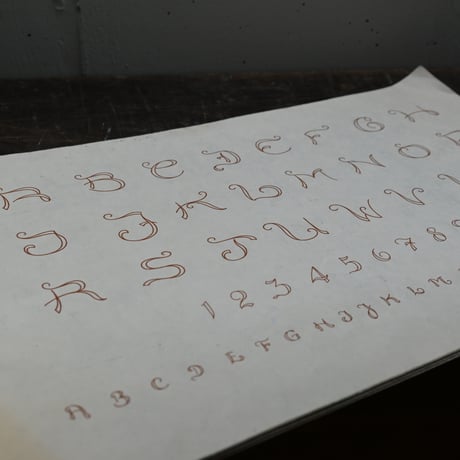 A B C D E F G H
I J K L M N O
R S T U V W V
1 2 3 4 5 6 7 8 9
A B C D E F G H I J K L M